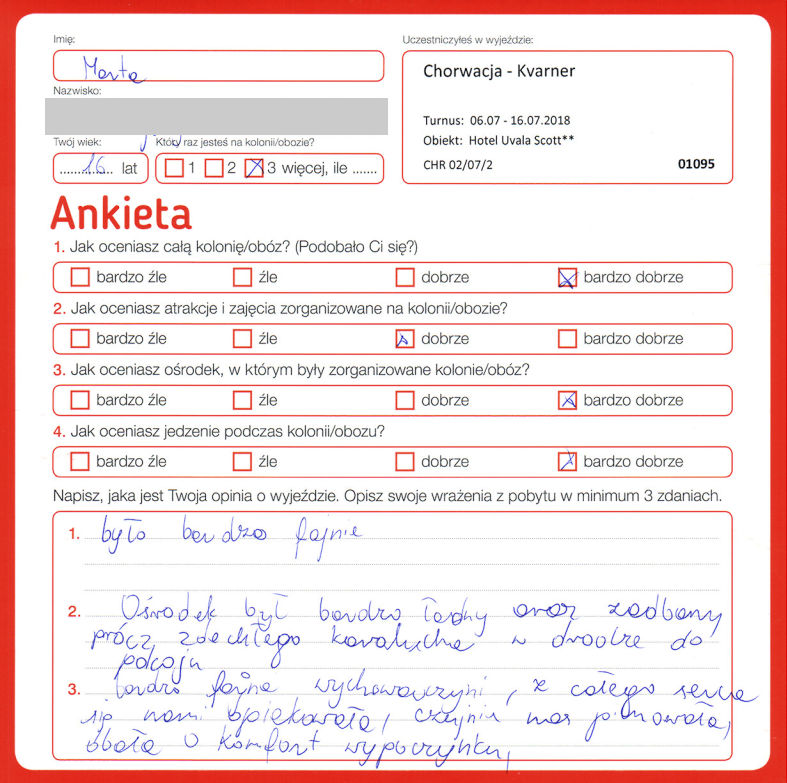 Imię:
Uczestniczyłeś w wyjeździe:
Marta
Chorwacja - Kvarner
Nazwisko:
Turnus: 06.07 - 16.07.2018
Obiekt: Hotel Uvala Scott**
Twój wiek:
Który raz jesteś na kolonii/obozie?
16 lat
1 2 3 więcej, ile .......
CHR 02/07/2
01095
Ankieta
1. Jak oceniasz całą kolonię/obóz? (Podobało Ci się?)
bardzo źle źle dobrze bardzo dobrze
2. Jak oceniasz atrakcje i zajęcia zorganizowane na kolonii/obozie?
bardzo źle źle dobrze bardzo dobrze
3. Jak oceniasz ośrodek, w którym były zorganizowane kolonie/obóz?
bardzo źle źle dobrze bardzo dobrze
4. Jak oceniasz jedzenie podczas kolonii/obozu?
bardzo źle źle dobrze bardzo dobrze
Napisz, jaka jest Twoja opinia o wyjeździe. Opisz swoje wrażenia z pobytu w minimum 3 zdaniach.
1. było bardzo fajnie
2. Ośrodek był bardzo ładny oraz zadbany
prócz zdechłego karalucha w drodze do
pokoju
3. bardzo fajna wychowawczyni, z całego serca
się nami opiekowała, czujnie nas pilnowała,
dbała o komfort wypoczynku,